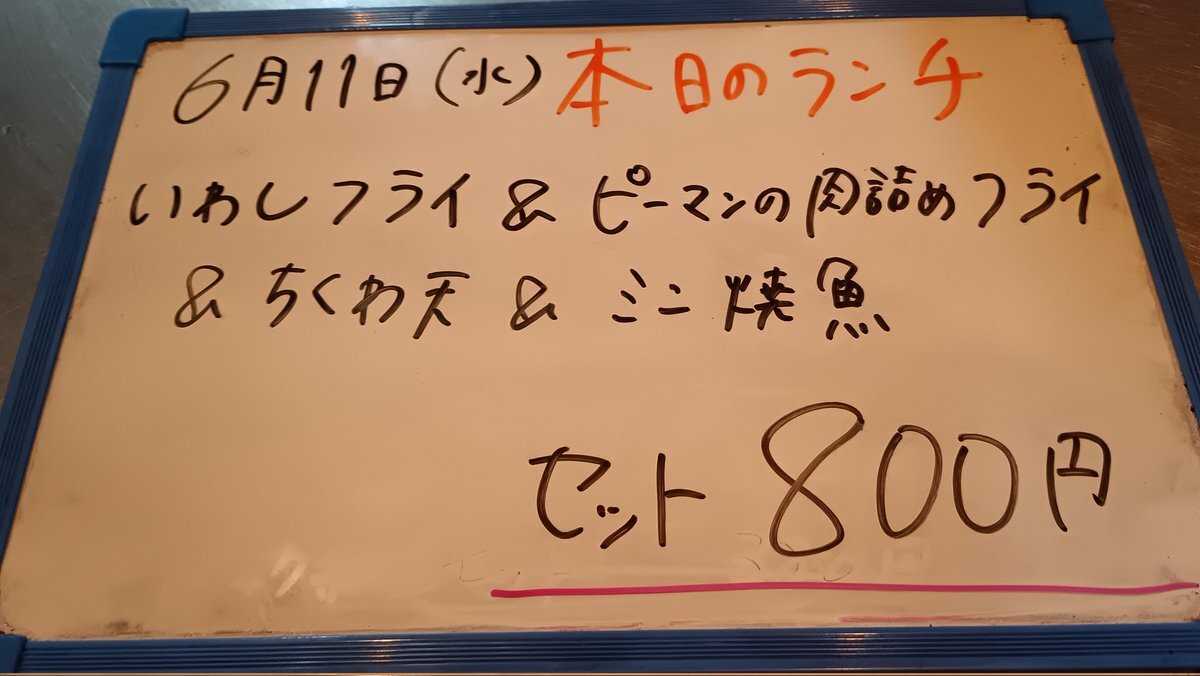 6月11日(水)本日のランチ
いわしフライ & ピーマンの肉詰めフライ
& ちくわ天 & ミニ焼魚
セット 800円